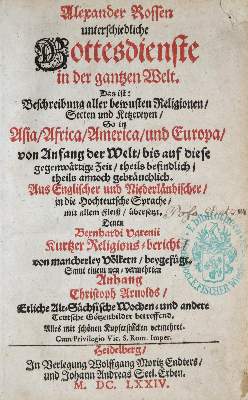 Alexander Rossen
unterschiedliche
Gottesdienste
in der gantzen Welt.
Das ist:
Beschreibung aller bewusten Religionen/
Secten und Ketzereyen/
So in
Asia/Africa/America/und Europa/
von Anfang der Welt/bis auf diese
gegenwärtige Zeit/theils befindlich/
theils annoch gebräuchlich.
Aus Englischer und Niederländischer/
in die Hochteutsche Sprache/
mit allem Fleiß/übersetzt.
Denen
Bernhardi Varenii
Kurtzer Religions-bericht
von mancherley Völkern/beygefüget.
Samt einem neu-vermehrten
Anhang
Christoph Arnolds/
Etliche Alt-Sächsische Wochen- und andere
Teutsche Götzenbilder betreffend.
Alles mit schönen Kupferstücken vermehret.
Cum Privilegio Vic. S. Rom. Imper.
Heidelberg/
In Verlegung Wolffgang Moritz Endters/
und Johann Andreas Seel. Erben.
M. DC. LXXIV.